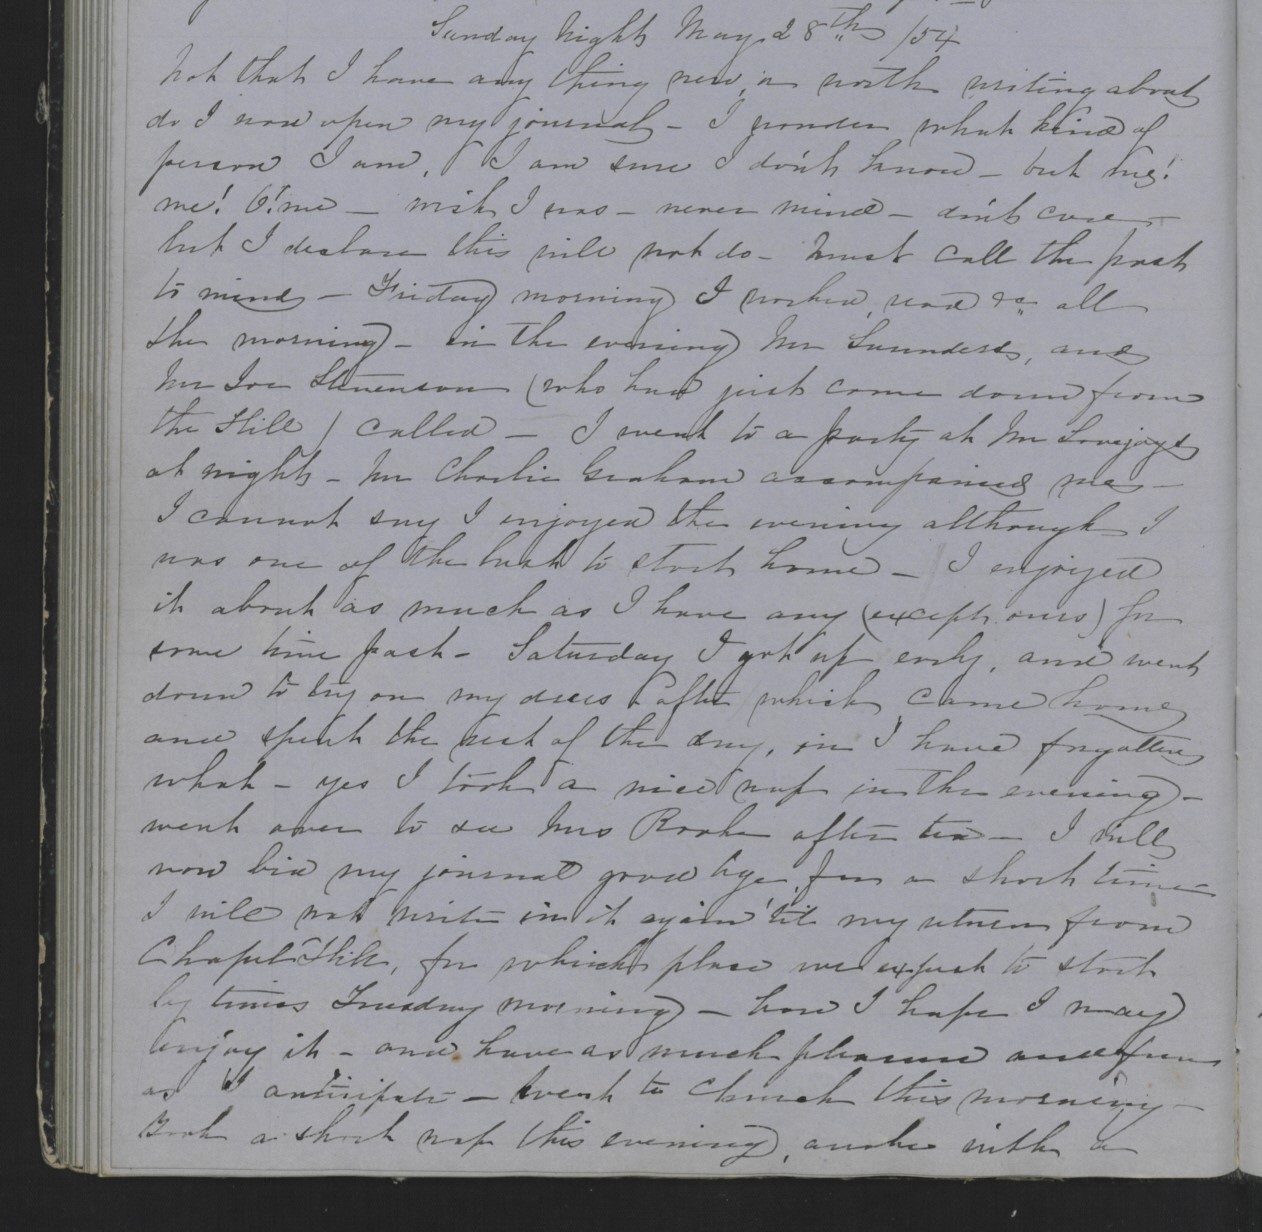 Sunday Night May 28th /54
Not that I have any thing new, or worth writing about
do I now open my journal - I wonder what kind of
person I am, I am sure I don't know - but me!
me! O! me - wish I was - never mind - don't care -
but I declare this will not do - must call the past
to mind - Friday morning I worked, read &c all
the morning - in the evening Mr Saunders, and
Mr Joe Stevenson (who had just come down from
the Hill) called - I went to a party at Mr Lovejoys
at night - Mr Charlie Graham accompanied me -
I cannot say I enjoyed the evening although I
was one of the last to start home - I enjoyed
it about as much as I have any (except ours) for
some time past - Saturday I got up early, and went
down to try on my dress & after which came home
and spent the rest of the day, in I have forgotten
what - yes I took a nice nap in the evening -
went over to see Mrs after tea - I will
now bid my journal good bye, for a short time
I will not write in it again 'til my return from
Chapel Hill, for which place we expect to start
by times Tuesday morning - how I hope I may
enjoy it - and have as much pleasure and fun
as I anticipate - went to Church this morning -
took a short nap this evening, awoke with a